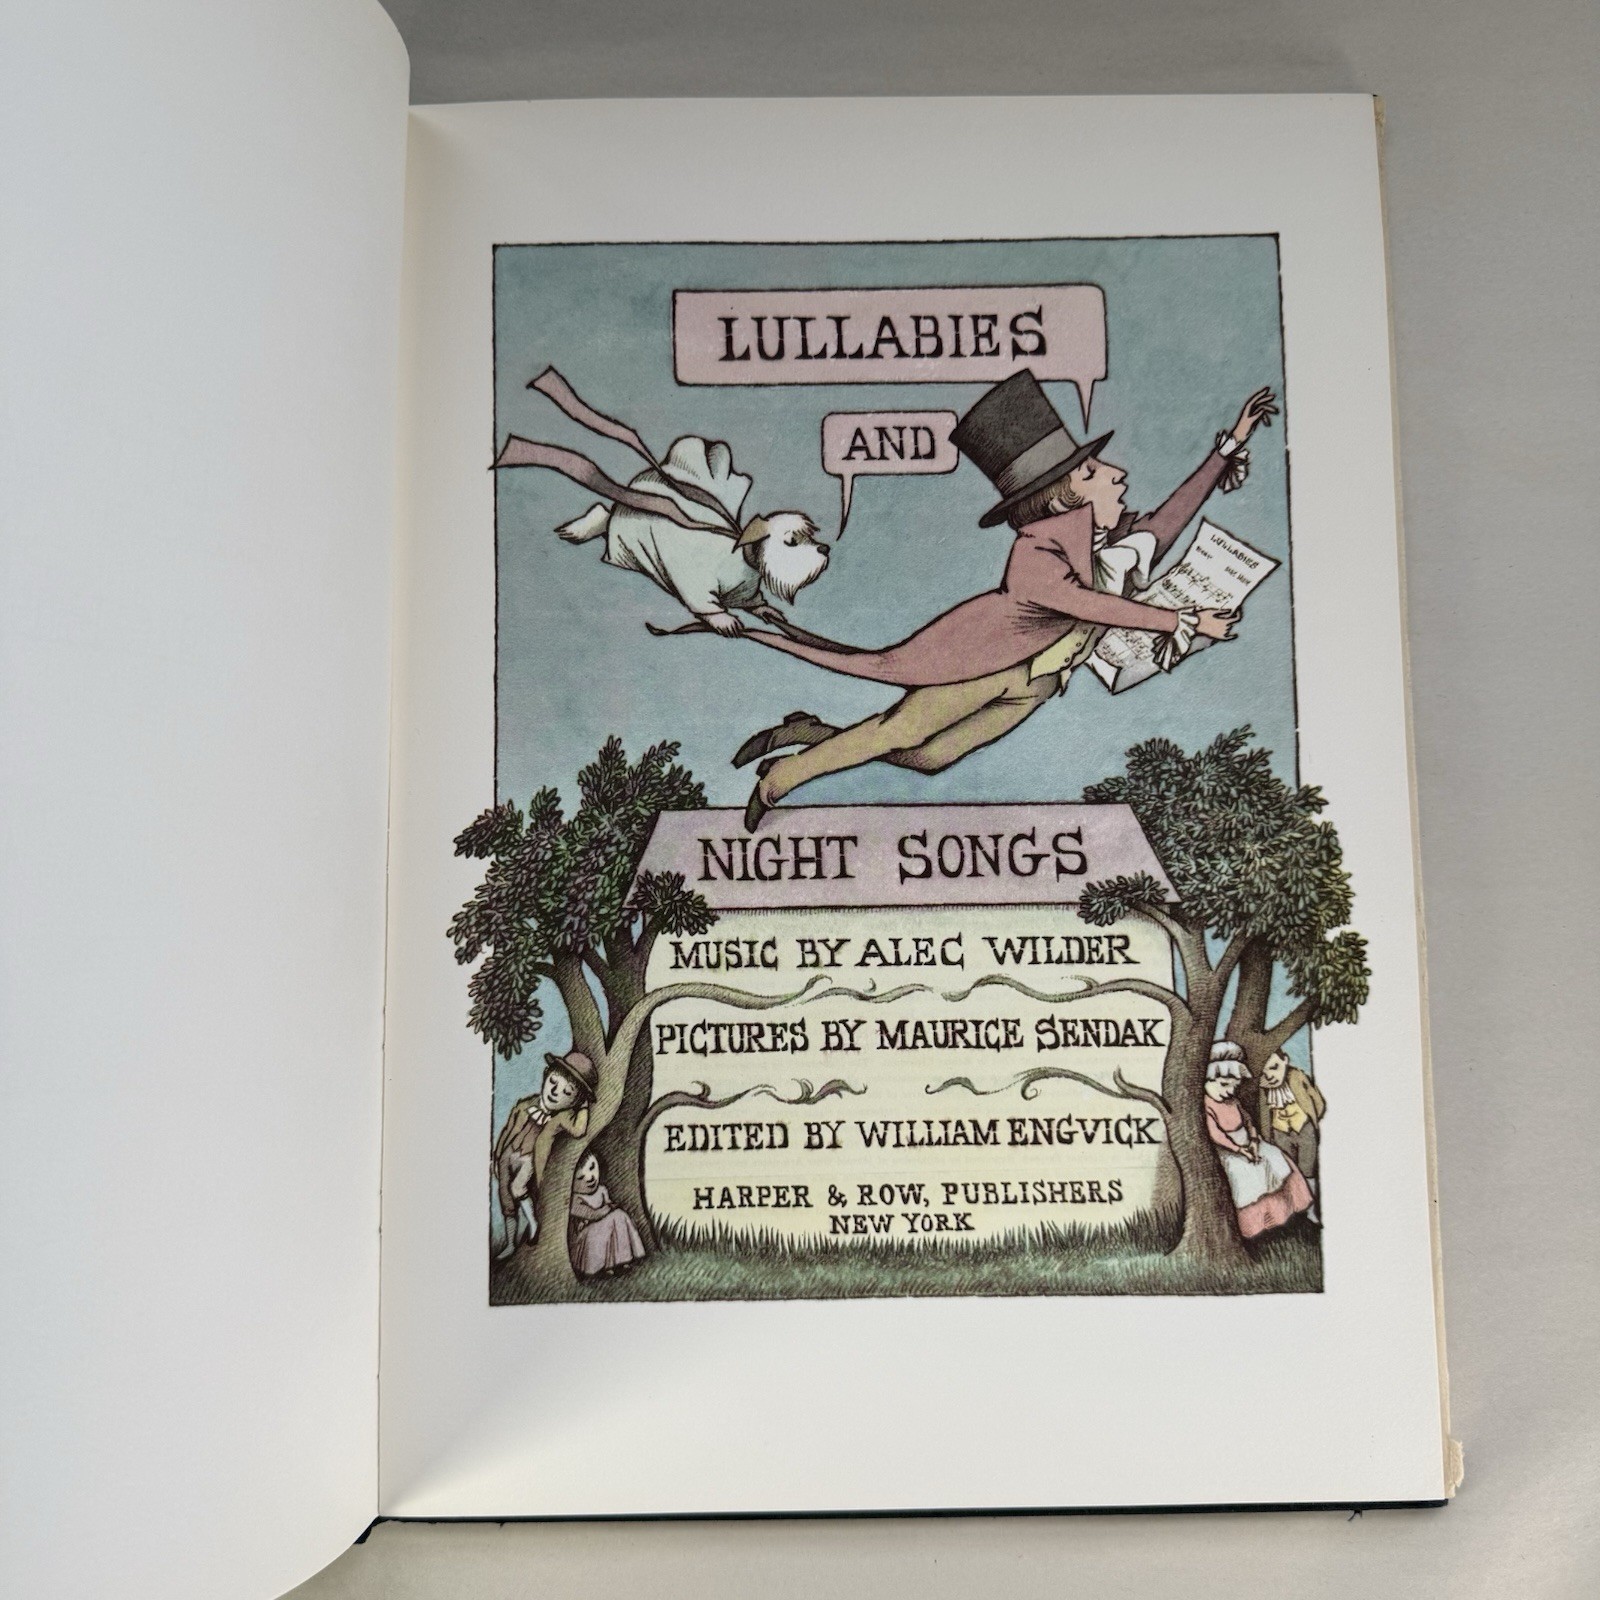 LULLABIES
AND
LULLABIES
NIGHT SONGS
MUSIC BY ALEC WILDER
PICTURES BY MAURICE SENDAK
EDITED BY WILLIAM ENGVICK
HARPER & ROW, PUBLISHERS
NEW YORK